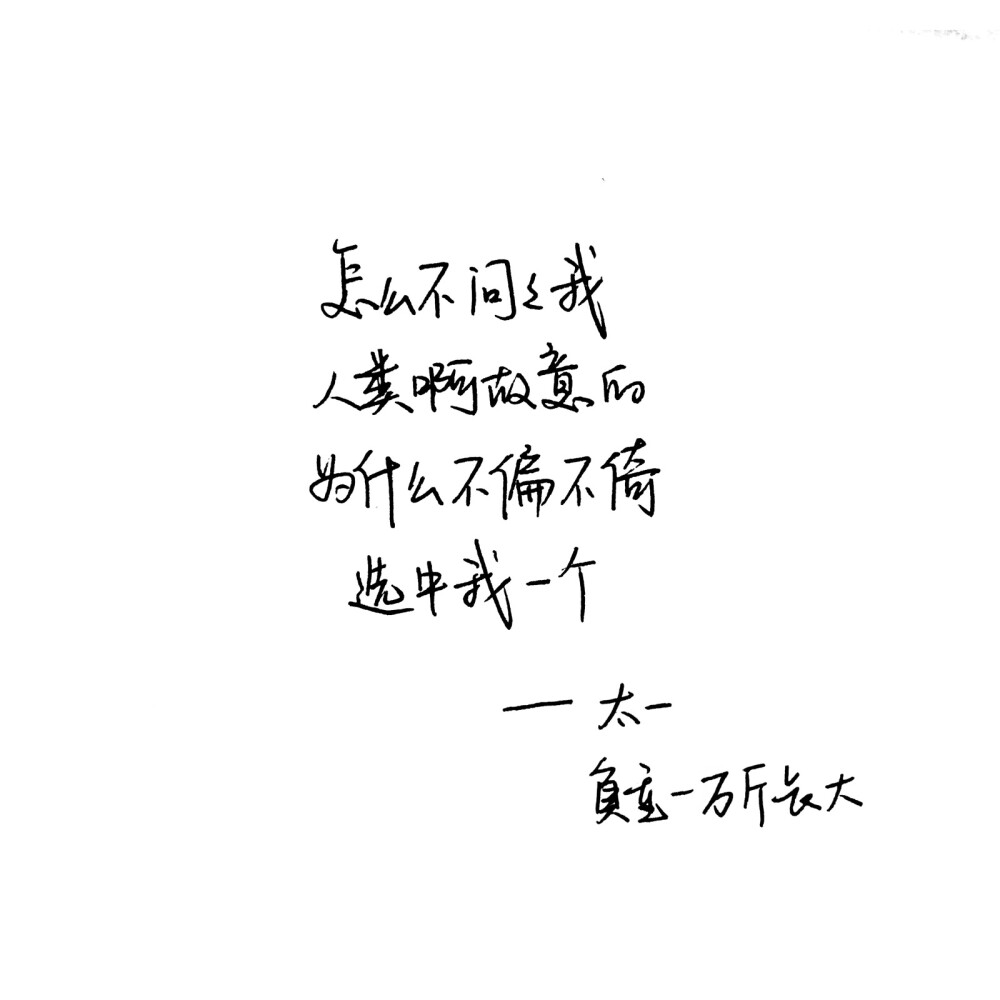 怎么不问々我
人类啊故意的
为什么不偏不倚
选中我一个
—— 太一
负重一万斤长大